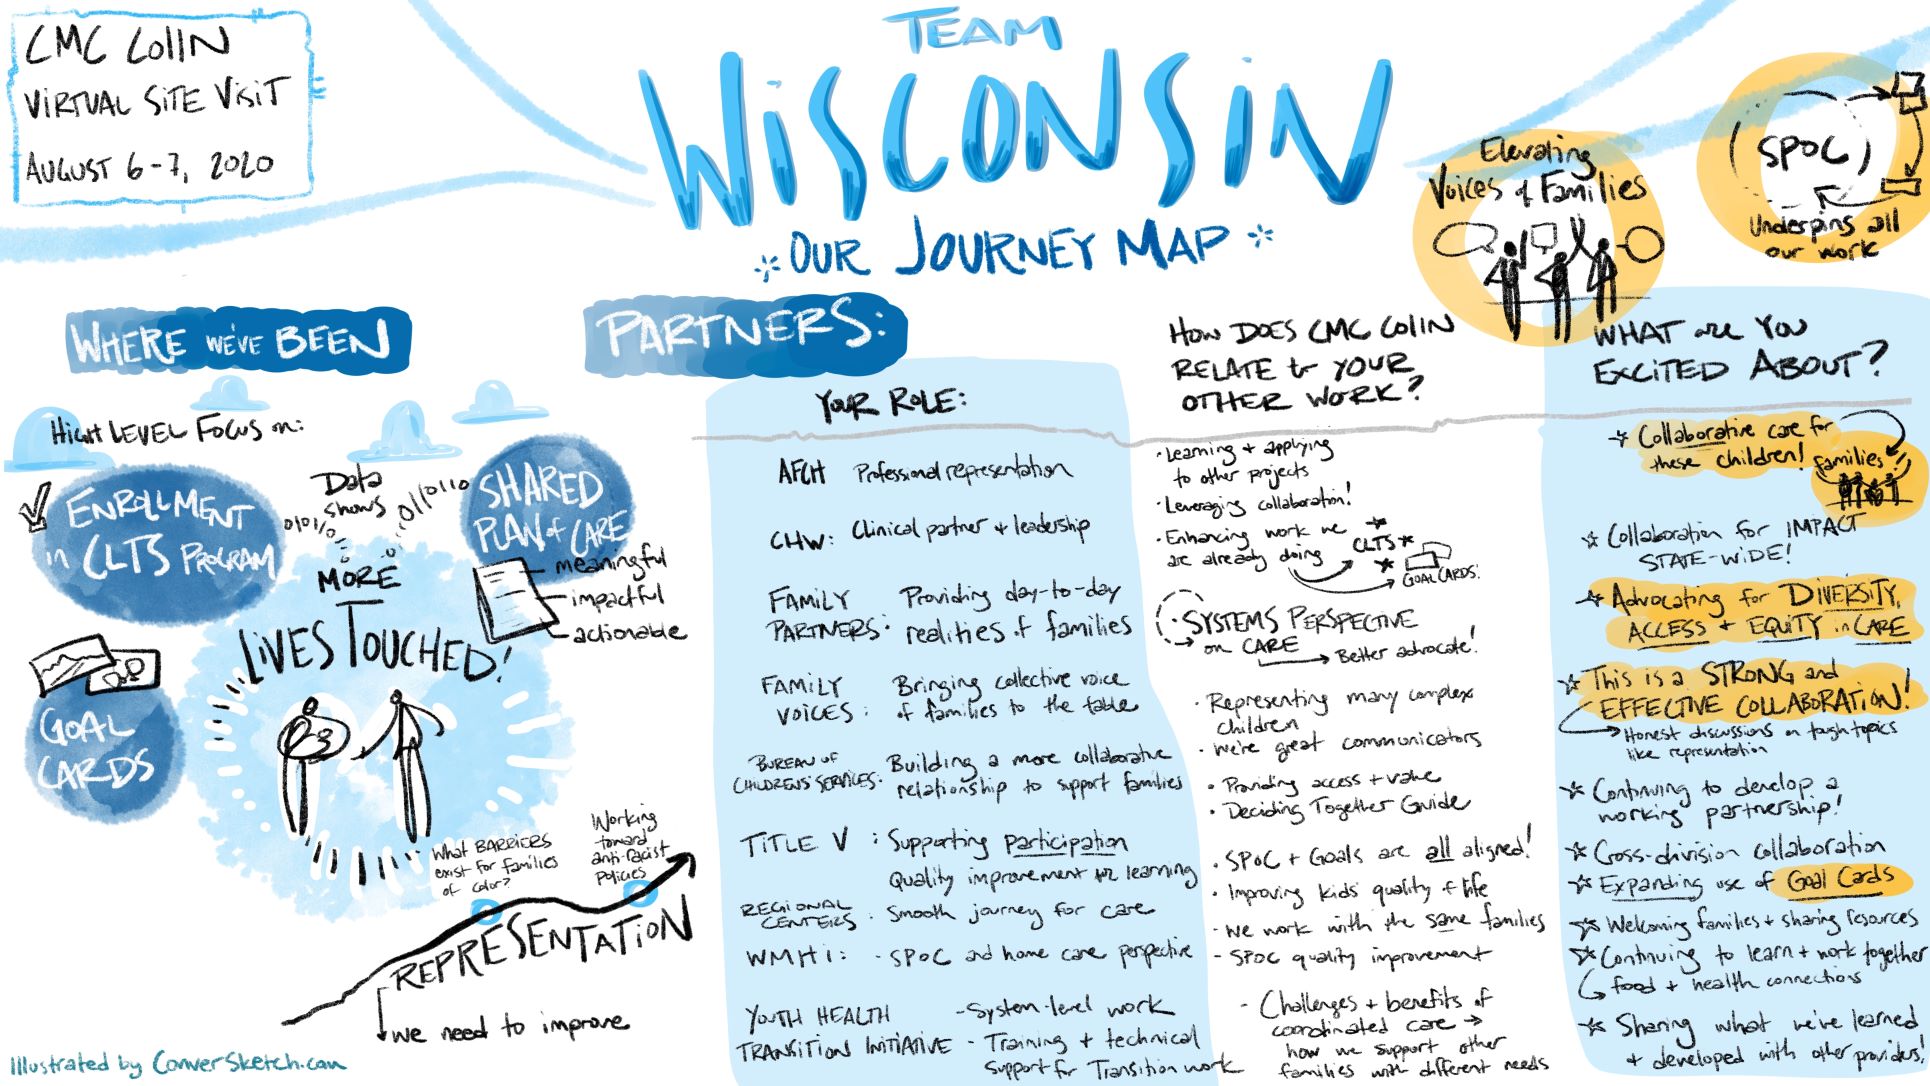 CMC CoIIN
VIRTUAL SITE VISIT
AUGUST 6-7, 2020
TEAM
WISCONSIN
OUR JOURNEY MAP
Elevating
Voices of Families
(SPoC)
Underpins all
our work
WHERE WE'VE BEEN
HIGH LEVEL FOCUS on:
ENROLLMENT
in CLTS PROGRAM
Data
shows
MORE
LIVES TOUCHED!
SHARED
PLAN of CARE
meaningful
impactful
actionable
GOAL
CARDS
What BARRIERS
exist for families
of color?
Working
toward
anti-racist
policies
REPRESENTATION
we need to improve
Illustrated by ConverSketch.com
PARTNERS:
YOUR ROLE:
AFCH Professional representation
CHW: Clinical partner + leadership
FAMILY Providing day-to-day
PARTNERS: realities of families
FAMILY Bringing collective voice
VOICES: of families to the table
BUREAU OF Building a more collaborative
CHILDRENS SERVICES: relationship to support families
TITLE V : Supporting participation
Quality improvement for learning
REGIONAL
CENTERS : Smooth journey for care
WMHI: - SPoC and home care perspective
YOUTH HEALTH - System-level work
TRANSITION INITIATIVE - Training + technical
support for Transition work
HOW DOES CMC CoIIN
RELATE to YOUR
OTHER WORK?
· Learning + applying
to other projects
· Leveraging collaboration!
· Enhancing work we
are already doing
CLTS
GOAL CARDS!
SYSTEMS PERSPECTIVE
on CARE
Better advocate!
· Representing many complex
children
· We're great communicators
· Providing access + value
· Deciding Together Guide
· SPoC + Goals are all aligned!
· Improving kids' quality of life
- We work with the same families
- SPoC quality improvement
- Challenges + benefits of
coordinated care →
how we support other
families with different needs
WHAT are YOU
EXCITED ABOUT?
Collaborative care for
these children!
families!
Collaboration for IMPACT
STATE-WIDE!
Advocating for DIVERSITY,
ACCESS + EQUITY in CARE
This is a STRONG and
EFFECTIVE COLLABORATION!
Honest discussions on tough topics
like representation
Continuing to develop a
working partnership!
Cross-division collaboration
Expanding use of Goal Cards
Welcoming families + sharing resources
Continuing to learn + work together
food + health connections
Sharing what we've learned
+ developed with other providers!